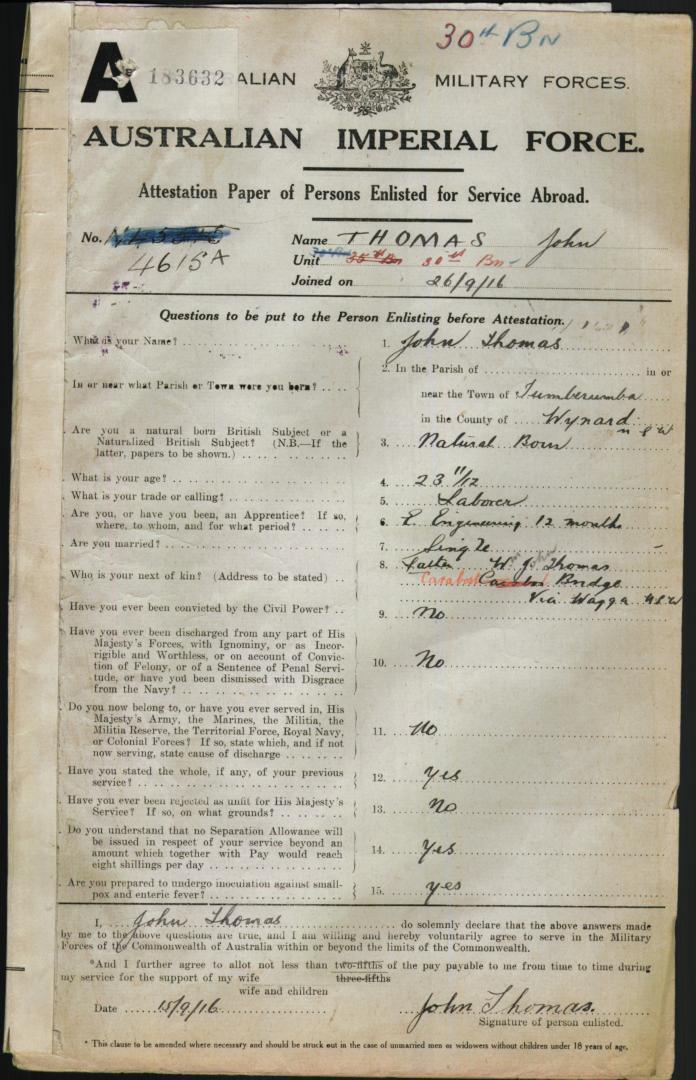 30th Bn
A 183632 ALIAN MILITARY FORCES.
AUSTRALIAN IMPERIAL FORCE.
Attestation Paper of Persons Enlisted for Service Abroad.
No. Name THOMAS John
4615A Unit 35th Bn 30th Bn
Joined on 26/9/16
Questions to be put to the Person Enlisting before Attestation.
What is your Name? 1. John Thomas
In or near what Parish or Town were you born? 2. In the Parish of in or
near the Town of Tumberumba
in the County of Wynard
N S W
Are you a natural born British Subject or a Naturalized British Subject? (N.B.—If the latter, papers to be shown.) 3. Natural Born
What is your age? 4. 23 11/12
What is your trade or calling? 5. Laborer
Are you, or have you been, an Apprentice? If so, where, to whom, and for what period? 6. E. Engineering 12 months
Are you married? 7. Single
Who is your next of kin? (Address to be stated) 8. Father W. J. Thomas
Carabost Bridge
Via Wagga NSW
Have you ever been convicted by the Civil Power? 9. No
Have you ever been discharged from any part of His
Majesty's Forces, with Ignominy, or as Incor-
rigible and Worthless, or on account of Convic-
tion of Felony, or of a Sentence of Penal Servi-
tude, or have you been dismissed with Disgrace
from the Navy? 10. No
Do you now belong to, or have you ever served in, His
Majesty's Army, the Marines, the Militia, the
Militia Reserve, the Territorial Force, Royal Navy,
or Colonial Forces? If so, state which, and if not
now serving, state cause of discharge 11. No
Have you stated the whole, if any, of your previous
service? 12. Yes
Have you ever been rejected as unfit for His Majesty's
Service? If so, on what grounds? 13. No
Do you understand that no Separation Allowance will
be issued in respect of your service beyond an
amount which together with Pay would reach
eight shillings per day 14. Yes
Are you prepared to undergo inoculation against small-
pox and enteric fever? 15. yes
I, John Thomas do solemnly declare that the above answers made
by me to the above questions are true, and I am willing and hereby voluntarily agree to serve in the Military
Forces of the Commonwealth of Australia within or beyond the limits of the Commonwealth.
*And I further agree to allot not less than two-fifths of the pay payable to me from time to time during
three-fifths
my service for the support of my wife
wife and children
Date 15/9/16 John Thomas.
Signature of person enlisted.
* This clause to be amended where necessary and should be struck out in the case of unmarried men or widowers without children under 18 years of age.